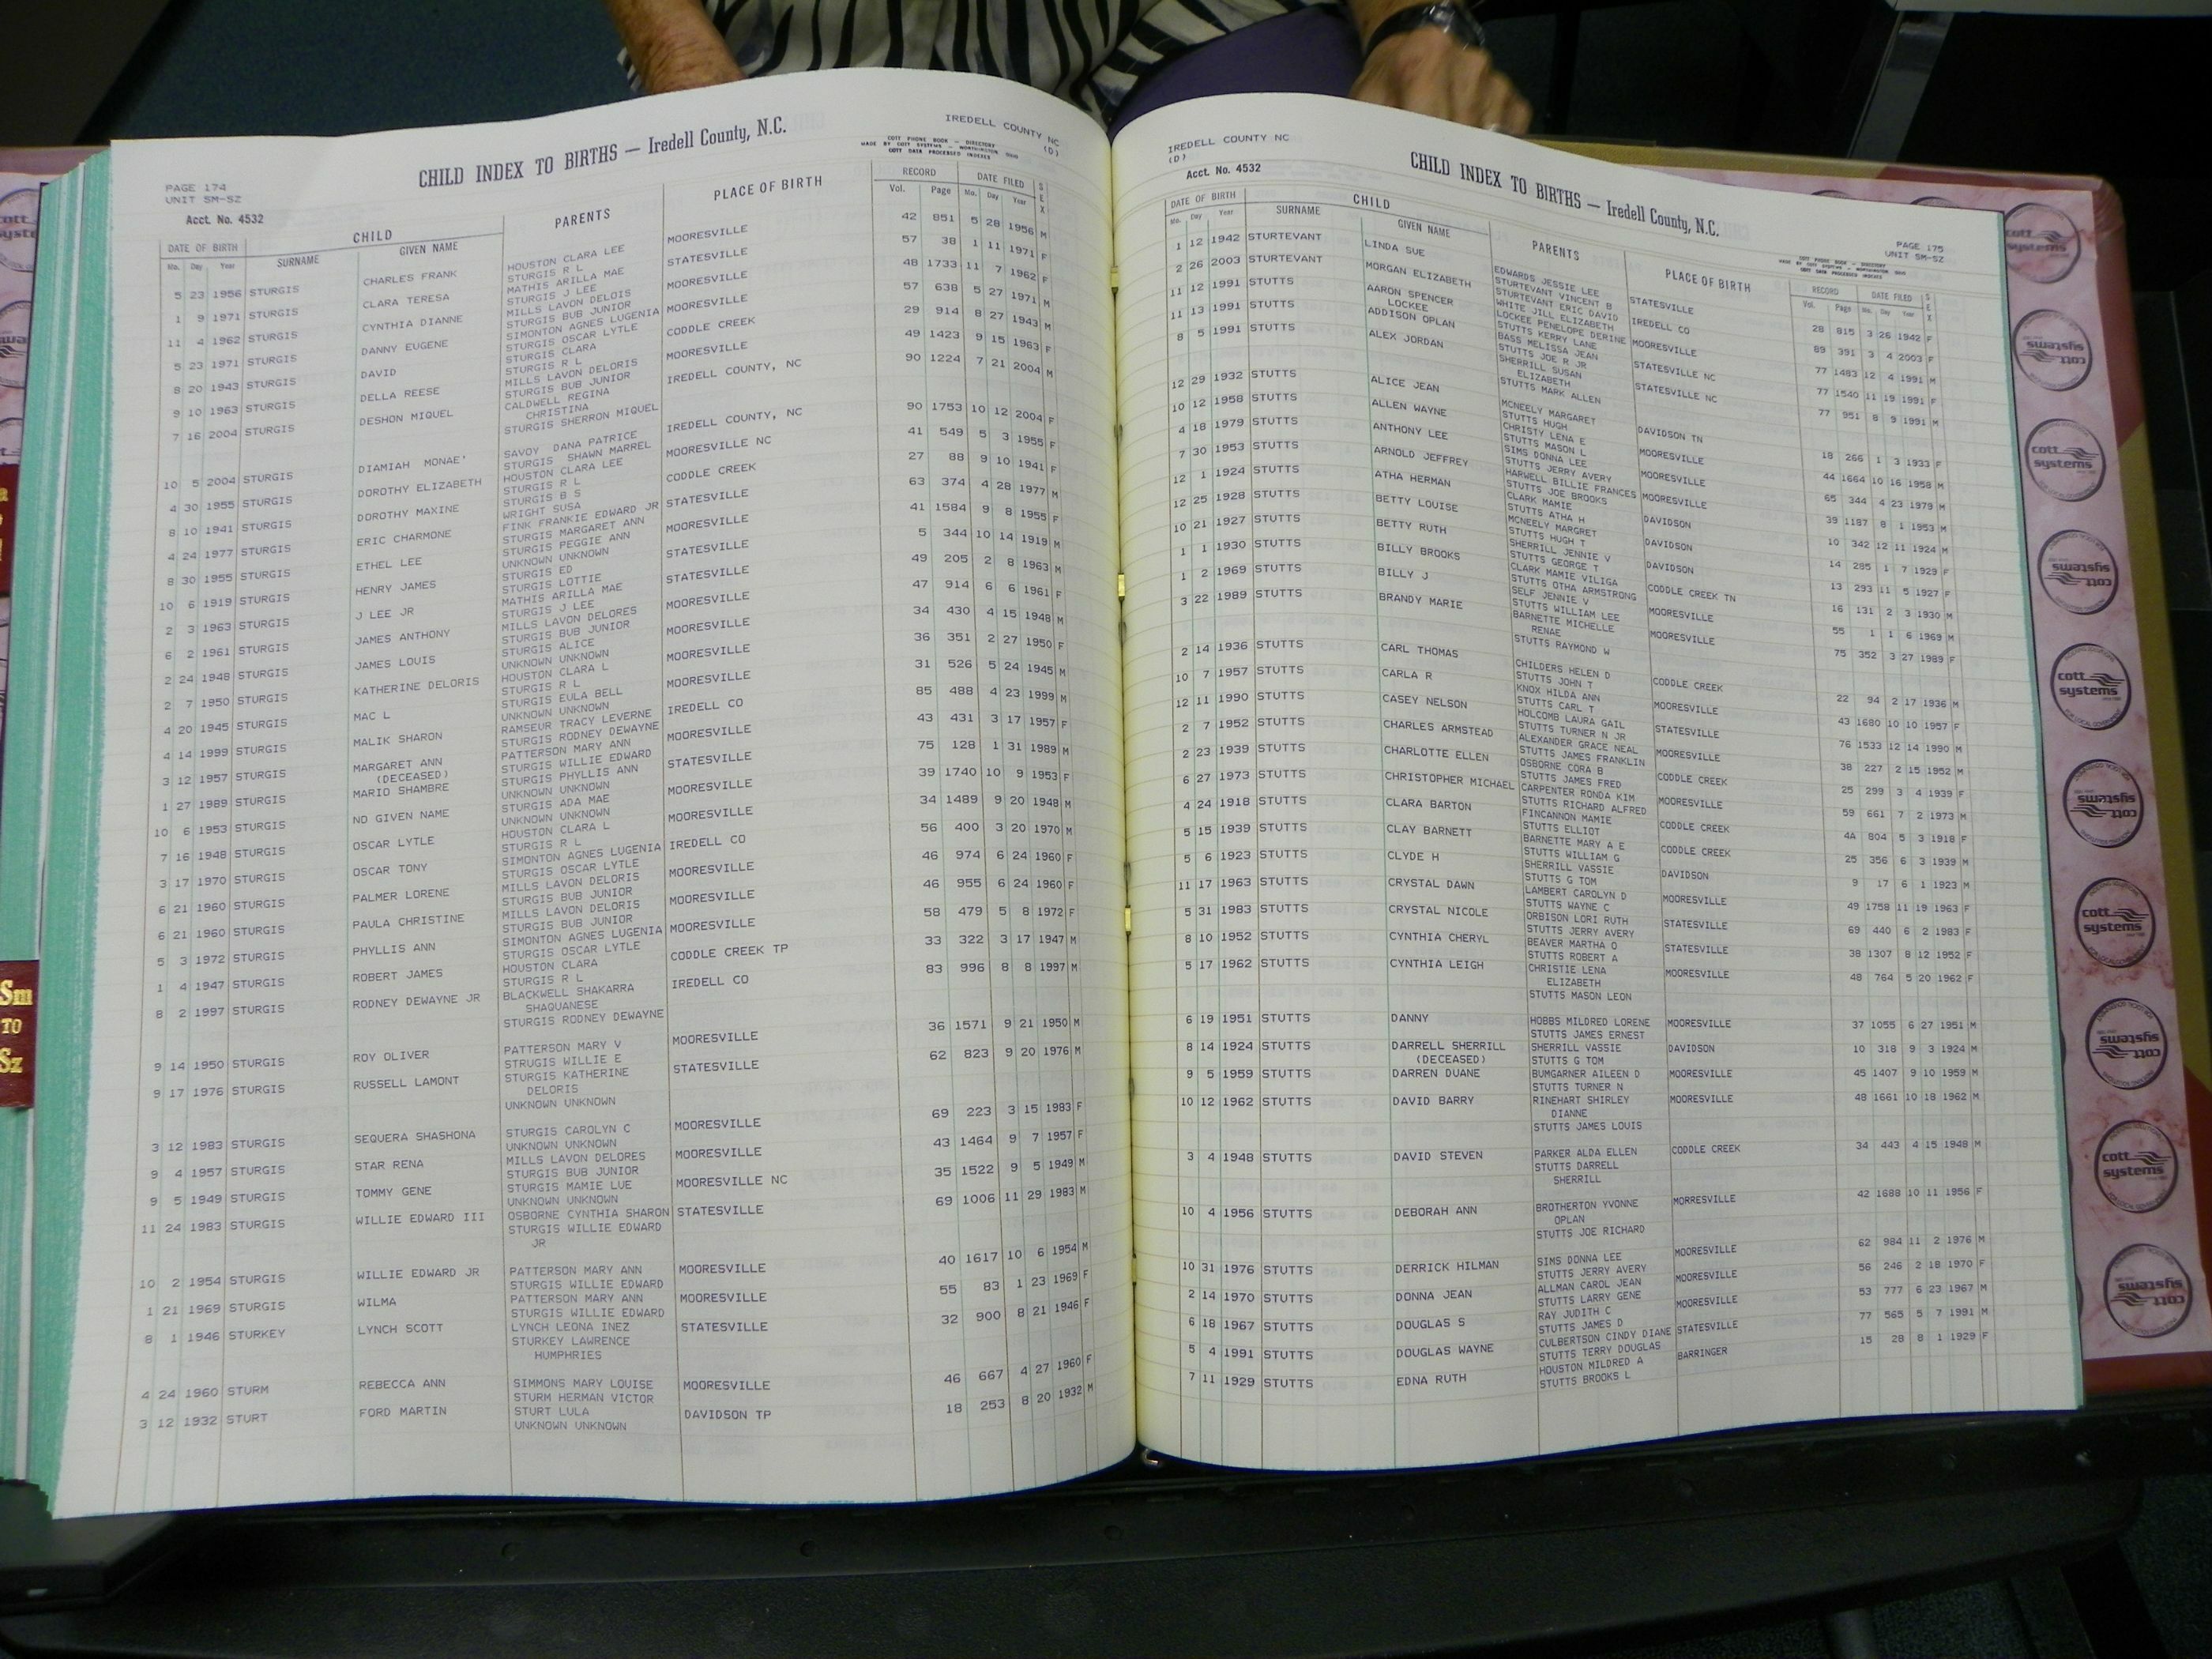 PAGE 174
UNIT SM-SZ
Acct. No. 4532
CHILD INDEX TO BIRTHS — Iredell County, N.C.
IREDELL COUNTY NC
(D)
COTT PHONE BOOK - DIRECTORY
MADE BY COTT SYSTEMS - WORTHINGTON OHIO
COTT DATA PROCESSED INDEXES
DATE OF BIRTH CHILD PARENTS PLACE OF BIRTH RECORD DATE FILED SEX
Mo. Day Year SURNAME GIVEN NAME Vol. Page Mo. Day Year
5 23 1956 STURGIS CHARLES FRANK HOUSTON CLARA LEE MOORESVILLE 42 851 5 28 1956 M
STURGIS R L
1 9 1971 STURGIS CLARA TERESA MATHIS ARILLA MAE STATESVILLE 57 38 1 11 1971 F
STURGIS J LEE
11 4 1962 STURGIS CYNTHIA DIANNE MILLS LAVON DELOIS MOORESVILLE 48 1733 11 7 1962 F
STURGIS BUB JUNIOR
5 23 1971 STURGIS DANNY EUGENE SIMONTON AGNES LUGENIA MOORESVILLE 57 638 5 27 1971 M
STURGIS OSCAR LYTLE
8 20 1943 STURGIS DAVID STURGIS CLARA CODDLE CREEK 29 914 8 27 1943 M
STURGIS R L
9 10 1963 STURGIS DELLA REESE MILLS LAVON DELORIS MOORESVILLE 49 1423 9 15 1963 F
STURGIS BUB JUNIOR
7 16 2004 STURGIS DESHON MIQUEL CALDWELL REGINA IREDELL COUNTY, NC 90 1224 7 21 2004 M
CHRISTINA
STURGIS SHERRON MIQUEL
10 5 2004 STURGIS DIAMIAH MONAE' SAVOY DANA PATRICE IREDELL COUNTY, NC 90 1753 10 12 2004 F
STURGIS SHAWN MARREL
4 30 1955 STURGIS DOROTHY ELIZABETH HOUSTON CLARA LEE MOORESVILLE NC 41 549 5 3 1955 F
STURGIS R L
8 10 1941 STURGIS DOROTHY MAXINE STURGIS B S CODDLE CREEK 27 88 9 10 1941 F
WRIGHT SUSA
4 24 1977 STURGIS ERIC CHARMONE FINK FRANKIE EDWARD JR STATESVILLE 63 374 4 28 1977 M
STURGIS MARGARET ANN
8 30 1955 STURGIS ETHEL LEE STURGIS PEGGIE ANN MOORESVILLE 41 1584 9 8 1955 F
UNKNOWN UNKNOWN
10 6 1919 STURGIS HENRY JAMES STURGIS ED STATESVILLE 5 344 10 14 1919 M
STURGIS LOTTIE
2 3 1963 STURGIS J LEE JR MATHIS ARILLA MAE STATESVILLE 49 205 2 8 1963 M
STURGIS J LEE
6 2 1961 STURGIS JAMES ANTHONY MILLS LAVON DELORES MOORESVILLE 47 914 6 6 1961 F
STURGIS BUB JUNIOR
2 24 1948 STURGIS JAMES LOUIS STURGIS ALICE MOORESVILLE 34 430 4 15 1948 M
UNKNOWN UNKNOWN
2 7 1950 STURGIS KATHERINE DELORIS HOUSTON CLARA L MOORESVILLE 36 351 2 27 1950 F
STURGIS R L
4 20 1945 STURGIS MAC L STURGIS EULA BELL MOORESVILLE 31 526 5 24 1945 M
UNKNOWN UNKNOWN
4 14 1999 STURGIS MALIK SHARON RAMSEUR TRACY LEVERNE IREDELL CO 85 488 4 23 1999 M
STURGIS RODNEY DEWAYNE
3 12 1957 STURGIS MARGARET ANN PATTERSON MARY ANN MOORESVILLE 43 431 3 17 1957 F
(DECEASED) STURGIS WILLIE EDWARD
1 27 1989 STURGIS MARIO SHAMBRE STURGIS PHYLLIS ANN STATESVILLE 75 128 1 31 1989 M
UNKNOWN UNKNOWN
10 6 1953 STURGIS NO GIVEN NAME STURGIS ADA MAE MOORESVILLE 39 1740 10 9 1953 F
UNKNOWN UNKNOWN
7 16 1948 STURGIS OSCAR LYTLE HOUSTON CLARA L MOORESVILLE 34 1489 9 20 1948 M
STURGIS R L
3 17 1970 STURGIS OSCAR TONY SIMONTON AGNES LUGENIA IREDELL CO 56 400 3 20 1970 M
STURGIS OSCAR LYTLE
6 21 1960 STURGIS PALMER LORENE MILLS LAVON DELORIS MOORESVILLE 46 974 6 24 1960 F
STURGIS BUB JUNIOR
6 21 1960 STURGIS PAULA CHRISTINE MILLS LAVON DELORIS MOORESVILLE 46 955 6 24 1960 F
STURGIS BUB JUNIOR
5 3 1972 STURGIS PHYLLIS ANN SIMONTON AGNES LUGENIA MOORESVILLE 58 479 5 8 1972 F
STURGIS OSCAR LYTLE
1 4 1947 STURGIS ROBERT JAMES HOUSTON CLARA CODDLE CREEK TP 33 322 3 17 1947 M
STURGIS R L
8 2 1997 STURGIS RODNEY DEWAYNE JR BLACKWELL SHAKARRA IREDELL CO 83 996 8 8 1997 M
SHAQUANESE
STURGIS RODNEY DEWAYNE
9 14 1950 STURGIS ROY OLIVER PATTERSON MARY V MOORESVILLE 36 1571 9 21 1950 M
STRUGIS WILLIE E
9 17 1976 STURGIS RUSSELL LAMONT STURGIS KATHERINE STATESVILLE 62 823 9 20 1976 M
DELORIS
UNKNOWN UNKNOWN
3 12 1983 STURGIS SEQUERA SHASHONA STURGIS CAROLYN C MOORESVILLE 69 223 3 15 1983 F
UNKNOWN UNKNOWN
9 4 1957 STURGIS STAR RENA MILLS LAVON DELORES MOORESVILLE 43 1464 9 7 1957 F
STURGIS BUB JUNIOR
9 5 1949 STURGIS TOMMY GENE STURGIS MAMIE LUE MOORESVILLE NC 35 1522 9 5 1949 M
UNKNOWN UNKNOWN
11 24 1983 STURGIS WILLIE EDWARD III OSBORNE CYNTHIA SHARON STATESVILLE 69 1006 11 29 1983 M
STURGIS WILLIE EDWARD
JR
10 2 1954 STURGIS WILLIE EDWARD JR PATTERSON MARY ANN MOORESVILLE 40 1617 10 6 1954 M
STURGIS WILLIE EDWARD
1 21 1969 STURGIS WILMA PATTERSON MARY ANN MOORESVILLE 55 83 1 23 1969 F
STURGIS WILLIE EDWARD
8 1 1946 STURKEY LYNCH SCOTT LYNCH LEONA INEZ STATESVILLE 32 900 8 21 1946 F
STURKEY LAWRENCE
HUMPHRIES
4 24 1960 STURM REBECCA ANN SIMMONS MARY LOUISE MOORESVILLE 46 667 4 27 1960 F
STURM HERMAN VICTOR
3 12 1932 STURT FORD MARTIN STURT LULA DAVIDSON TP 18 253 8 20 1932 M
UNKNOWN UNKNOWN
IREDELL COUNTY NC
(D)
Acct. No. 4532
CHILD INDEX TO BIRTHS — Iredell County, N.C.
PAGE 175
UNIT SM-SZ
DATE OF BIRTH CHILD PARENTS PLACE OF BIRTH RECORD DATE FILED SEX
Mo. Day Year SURNAME GIVEN NAME Vol. Page Mo. Day Year
1 12 1942 STURTEVANT LINDA SUE EDWARDS JESSIE LEE STATESVILLE 28 815 3 26 1942 F
STURTEVANT VINCENT B
2 26 2003 STURTEVANT MORGAN ELIZABETH STURTEVANT ERIC DAVID IREDELL CO 89 391 3 4 2003 F
WHITE JILL ELIZABETH
11 12 1991 STUTTS AARON SPENCER LOCKEE PENELOPE DERINE MOORESVILLE 77 1483 12 4 1991 M
LOCKEE STUTTS KERRY LANE
11 13 1991 STUTTS ADDISON OPLAN BASS MELISSA JEAN STATESVILLE NC 77 1540 11 19 1991 F
STUTTS JOE R JR
8 5 1991 STUTTS ALEX JORDAN SHERRILL SUSAN STATESVILLE NC 77 951 8 9 1991 M
ELIZABETH
STUTTS MARK ALLEN
12 29 1932 STUTTS ALICE JEAN MCNEELY MARGARET DAVIDSON TN 18 266 1 3 1933 F
STUTTS HUGH
10 12 1958 STUTTS ALLEN WAYNE CHRISTY LENA E MOORESVILLE 44 1664 10 16 1958 M
STUTTS MASON L
4 18 1979 STUTTS ANTHONY LEE SIMS DONNA LEE MOORESVILLE 65 344 4 23 1979 M
STUTTS JERRY AVERY
7 30 1953 STUTTS ARNOLD JEFFREY HARWELL BILLIE FRANCES DAVIDSON 39 1187 8 1 1953 M
STUTTS JOE BROOKS
12 1 1924 STUTTS ATHA HERMAN CLARK MAMIE DAVIDSON 10 342 12 11 1924 M
STUTTS ATHA H
12 25 1928 STUTTS BETTY LOUISE MCNEELY MARGRET DAVIDSON 14 285 1 7 1929 F
STUTTS HUGH T
10 21 1927 STUTTS BETTY RUTH SHERRILL JENNIE V CODDLE CREEK TN 13 293 11 5 1927 F
STUTTS GEORGE T
1 1 1930 STUTTS BILLY BROOKS CLARK MAMIE VILIGA MOORESVILLE 16 131 2 3 1930 M
STUTTS OTHA ARMSTRONG
1 2 1969 STUTTS BILLY J SELF JENNIE V MOORESVILLE 55 1 1 6 1969 M
STUTTS WILLIAM LEE
3 22 1989 STUTTS BRANDY MARIE BARNETTE MICHELLE 75 352 3 27 1989 F
RENAE
STUTTS RAYMOND W
2 14 1936 STUTTS CARL THOMAS CHILDERS HELEN D CODDLE CREEK 22 94 2 17 1936 M
STUTTS JOHN T
10 7 1957 STUTTS CARLA R KNOX HILDA ANN MOORESVILLE 43 1680 10 10 1957 F
STUTTS CARL T
12 11 1990 STUTTS CASEY NELSON HOLCOMB LAURA GAIL STATESVILLE 76 1533 12 14 1990 M
STUTTS TURNER N JR
2 7 1952 STUTTS CHARLES ARMSTEAD ALEXANDER GRACE NEAL MOORESVILLE 38 227 2 15 1952 M
STUTTS JAMES FRANKLIN
2 23 1939 STUTTS CHARLOTTE ELLEN OSBORNE CORA B CODDLE CREEK 25 299 3 4 1939 F
STUTTS JAMES FRED
6 27 1973 STUTTS CHRISTOPHER MICHAEL CARPENTER RONDA KIM MOORESVILLE 59 661 7 2 1973 M
STUTTS RICHARD ALFRED
4 24 1918 STUTTS CLARA BARTON FINCANNON MAMIE CODDLE CREEK 4A 804 5 3 1918 F
STUTTS ELLIOT
5 15 1939 STUTTS CLAY BARNETT BARNETTE MARY A E CODDLE CREEK 25 356 6 3 1939 M
STUTTS WILLIAM G
5 6 1923 STUTTS CLYDE H SHERRILL VASSIE DAVIDSON 9 17 6 1 1923 M
STUTTS G TOM
11 17 1963 STUTTS CRYSTAL DAWN LAMBERT CAROLYN D MOORESVILLE 49 1758 11 19 1963 F
STUTTS WAYNE C
5 31 1983 STUTTS CRYSTAL NICOLE ORBISON LORI RUTH STATESVILLE 69 440 6 2 1983 F
STUTTS JERRY AVERY
8 10 1952 STUTTS CYNTHIA CHERYL BEAVER MARTHA O STATESVILLE 38 1307 8 12 1952 F
STUTTS ROBERT A
5 17 1962 STUTTS CYNTHIA LEIGH CHRISTIE LENA MOORESVILLE 48 764 5 20 1962 F
ELIZABETH
STUTTS MASON LEON
6 19 1951 STUTTS DANNY HOBBS MILDRED LORENE MOORESVILLE 37 1055 6 27 1951 M
STUTTS JAMES ERNEST
8 14 1924 STUTTS DARRELL SHERRILL SHERRILL VASSIE DAVIDSON 10 318 9 3 1924 M
(DECEASED) STUTTS G TOM
9 5 1959 STUTTS DARREN DUANE BUMGARNER AILEEN D MOORESVILLE 45 1407 9 10 1959 M
STUTTS TURNER N
10 12 1962 STUTTS DAVID BARRY RINEHART SHIRLEY MOORESVILLE 48 1661 10 18 1962 M
DIANNE
STUTTS JAMES LOUIS
3 4 1948 STUTTS DAVID STEVEN PARKER ALDA ELLEN CODDLE CREEK 34 443 4 15 1948 M
STUTTS DARRELL
SHERRILL
10 4 1956 STUTTS DEBORAH ANN BROTHERTON YVONNE MORRESVILLE 42 1688 10 11 1956 F
OPLAN
STUTTS JOE RICHARD
10 31 1976 STUTTS DERRICK HILMAN SIMS DONNA LEE MOORESVILLE 62 984 11 2 1976 M
STUTTS JERRY AVERY
2 14 1970 STUTTS DONNA JEAN ALLMAN CAROL JEAN MOORESVILLE 56 246 2 18 1970 F
STUTTS LARRY GENE
6 18 1967 STUTTS DOUGLAS S RAY JUDITH C MOORESVILLE 53 777 6 23 1967 M
STUTTS JAMES D
5 4 1991 STUTTS DOUGLAS WAYNE CULBERTSON CINDY DIANE STATESVILLE 77 565 5 7 1991 M
STUTTS TERRY DOUGLAS
7 11 1929 STUTTS EDNA RUTH HOUSTON MILDRED A BARRINGER 15 28 8 1 1929 F
STUTTS BROOKS L
Sm
TO
Sz
cott systems
cott systems
cott systems
cott systems
cott systems
cott systems
cott systems
cott systems
cott systems
cott systems